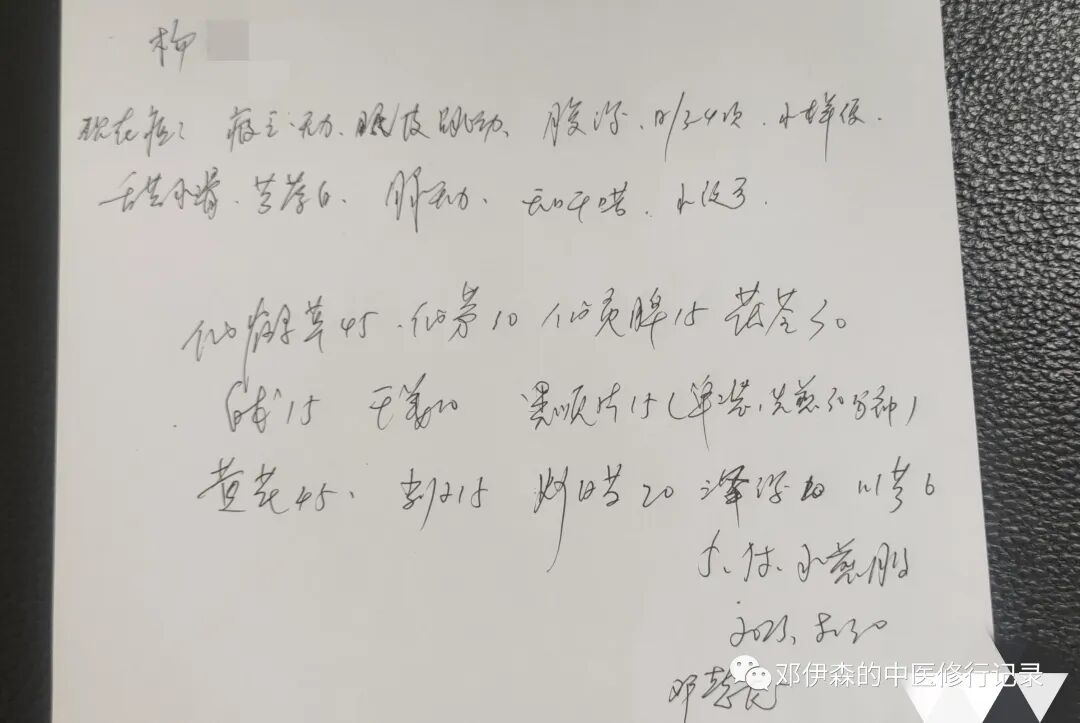 柳
现在症: 疲乏无力、眼皮跳动、腹泻、日/3-4次、水样便.
舌淡水滑、苔薄白、脉无力、无口干苦、小便可.
仙鹤草45、仙茅10 仙灵脾15 茯苓30
白术15 干姜20 黑顺片15(单包装,先煎30分钟)
黄芪45、荆芥15 炒白芍20 泽泻20 川芎6
5付、水煎服
邓
邓伊森的中医修行记录